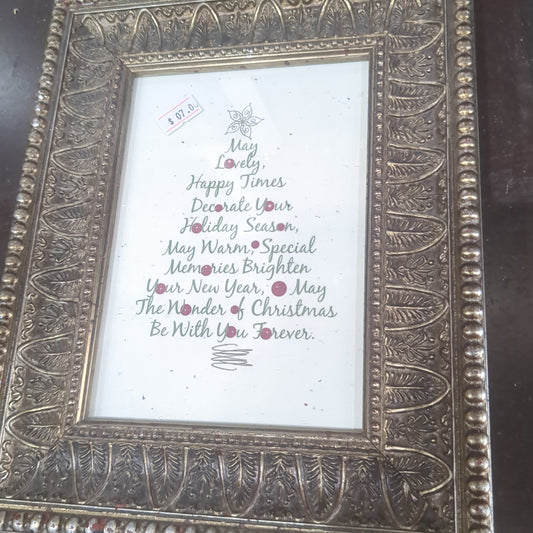 $ 07.0
May
Lovely,
Happy Times
Decorate Your
Holiday Season,
May Warm, Special
Memories Brighten
Your New Year, May
The Wonder of Christmas
Be With You Forever.